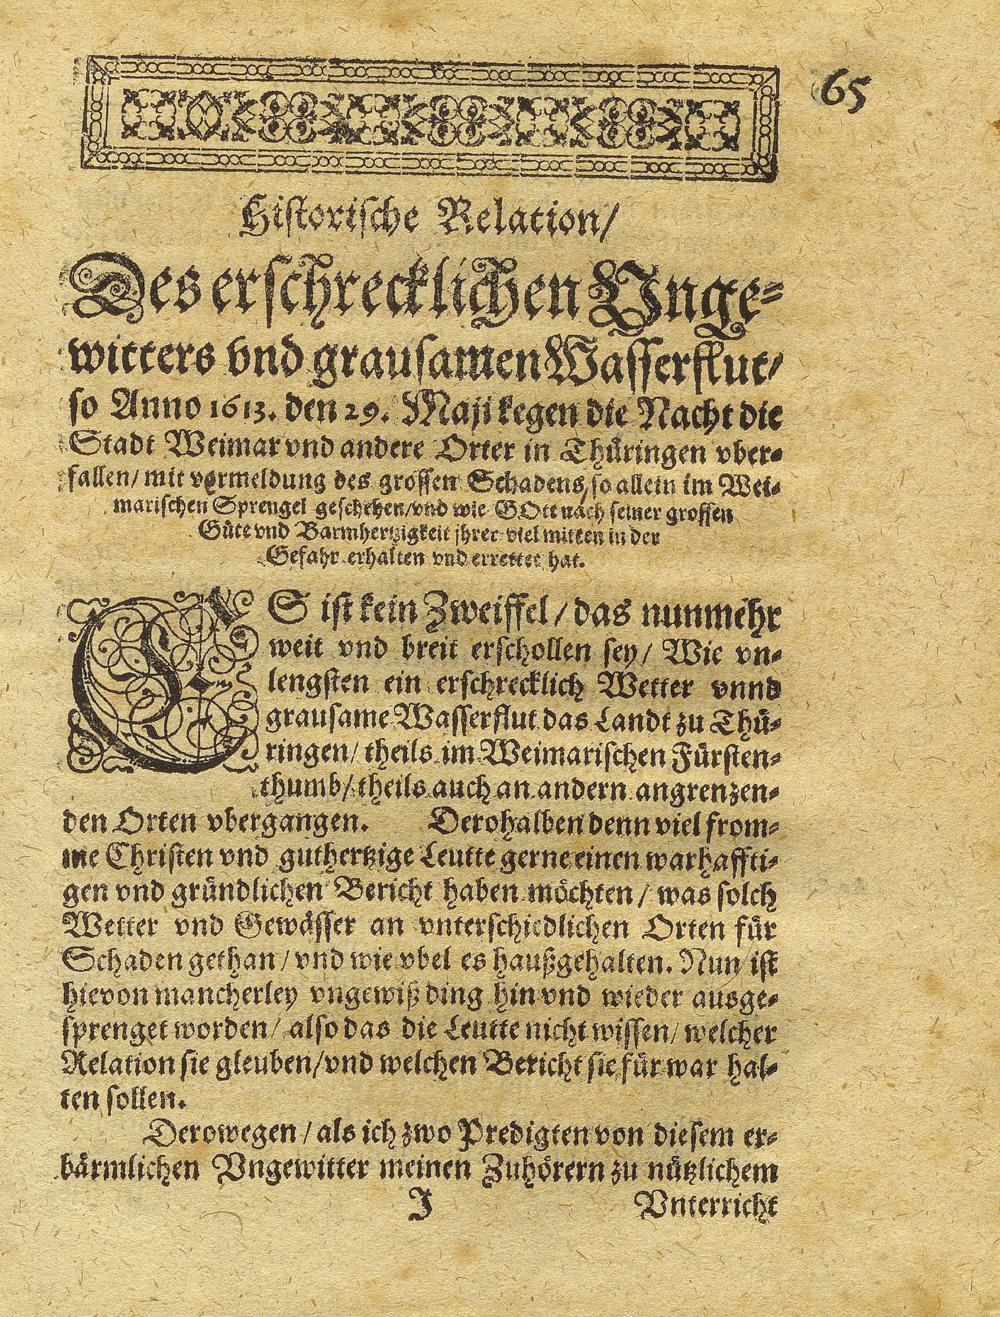 65
Historische Relation/
Des erschrecklichen Vnge-
witters vnd grausamen Wasserflut/
so Anno 1613. den 29. Maji kegen die Nacht die
Stadt Weimar vnd andere Orter in Thüringen vber-
fallen/ mit vermeldung des grossen Schadens/ so allein im Wei-
marischen Sprengel geschehen/ vnd wie GOtt nach seiner grossen
Güte vnd Barmhertzigkeit jhrer viel mitten in der
Gefahr erhalten vnd errettet hat.
ES ist kein Zweiffel/ das nunmehr
weit vnd breit erschollen sey/ Wie vn-
lengsten ein erschrecklich Wetter vnnd
grausame Wasserflut das Landt zu Thü-
ringen/ theils im Weimarischen Fürsten-
thumb/ theils auch an andern angrenzen-
den Orten vbergangen. Derohalben denn viel from-
me Christen vnd guthertzige Leutte gerne einen warhaffti-
gen vnd gründlichen Bericht haben möchten/ was solch
Wetter vnd Gewässer an vnterschiedlichen Orten für
Schaden gethan/ vnd wie vbel es haußgehalten. Nun ist
hievon mancherley vngewiß ding hin vnd wieder ausge-
sprenget worden/ also das die Leutte nicht wissen/ welcher
Relation sie gleuben/ vnd welchen Bericht sie für war hal-
ten sollen.
Derowegen/ als ich zwo Predigten von diesem er-
bärmlichen Vngewitter meinen Zuhörern zu nützlichem
J Vnterricht